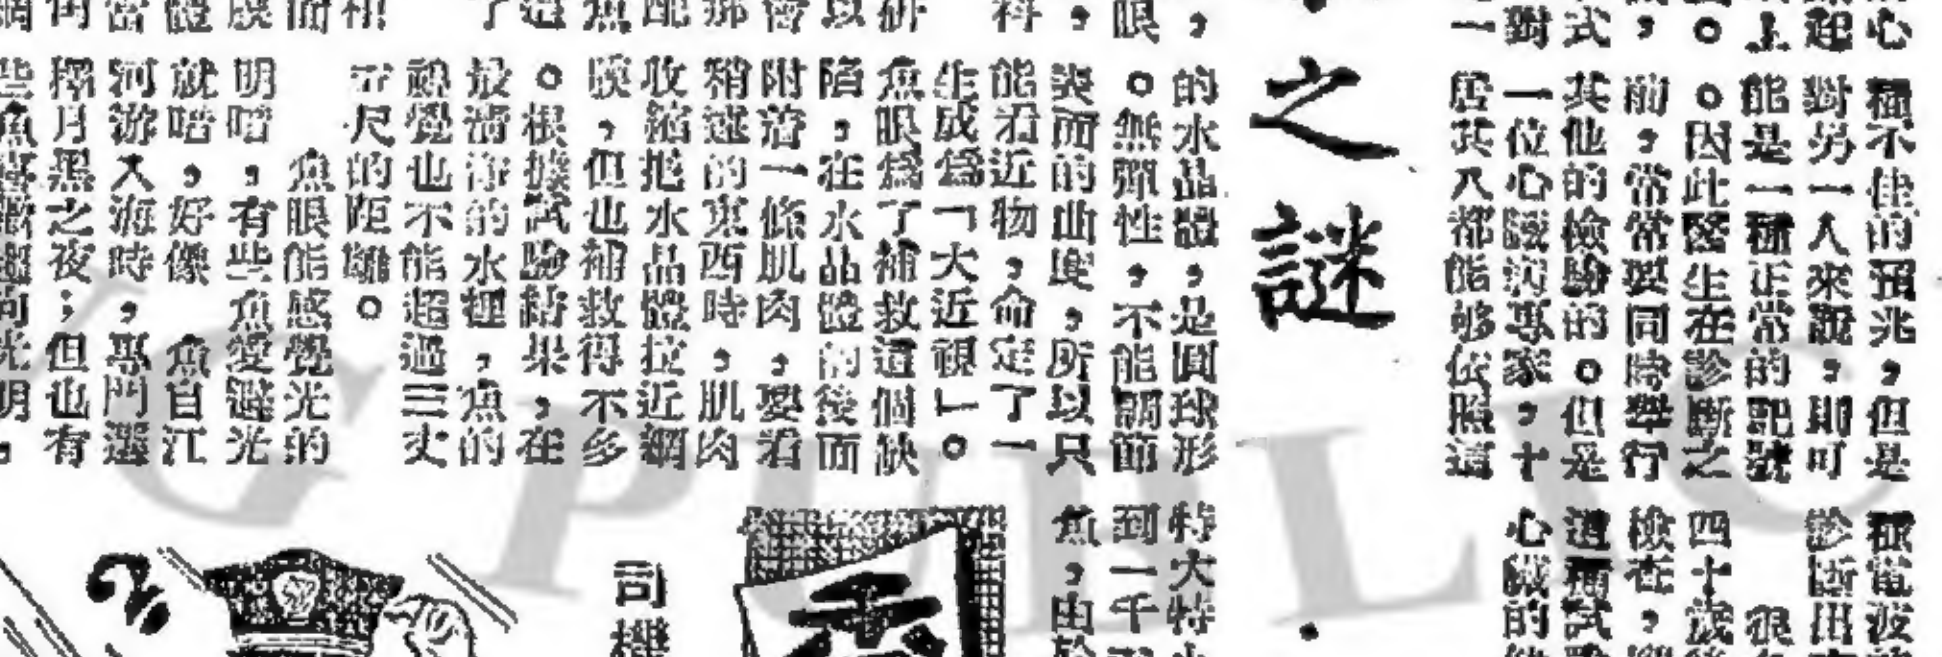 心
起
上
。
，
式
對
一
種不佳的預兆，但是
對另一人來說，則可
能是一種正常的記號
。因此醫生在診斷之
前，常常要同時舉行
其他的檢驗的。但是
一位心臟病專家，十
居其八都能够依照這
種電波
診斷出
很
四十歲
檢查，
這種試
心臟的
之謎
，
眼
，
科
的水晶體，是圓球形
。無彈性，不能調節
表面的曲度，所以只
能看近物，命定了一
生成爲「大近視」。
魚眼爲了補救這個缺
陷，在水晶體的後面
附着一條肌肉，要看
稍遠的東西時，肌肉
收縮把水晶體拉近網
膜，但也補救得不多
。根據試驗結果，在
最清淨的水裡，魚的
視覺也不能超過三丈
五尺的距離。
魚眼能感覺光的
明暗，有些魚愛避光
就暗，好像魚自江
河游入海時，專門選
擇月黑之夜；但也有
特大特
到一千
魚，由於
司機